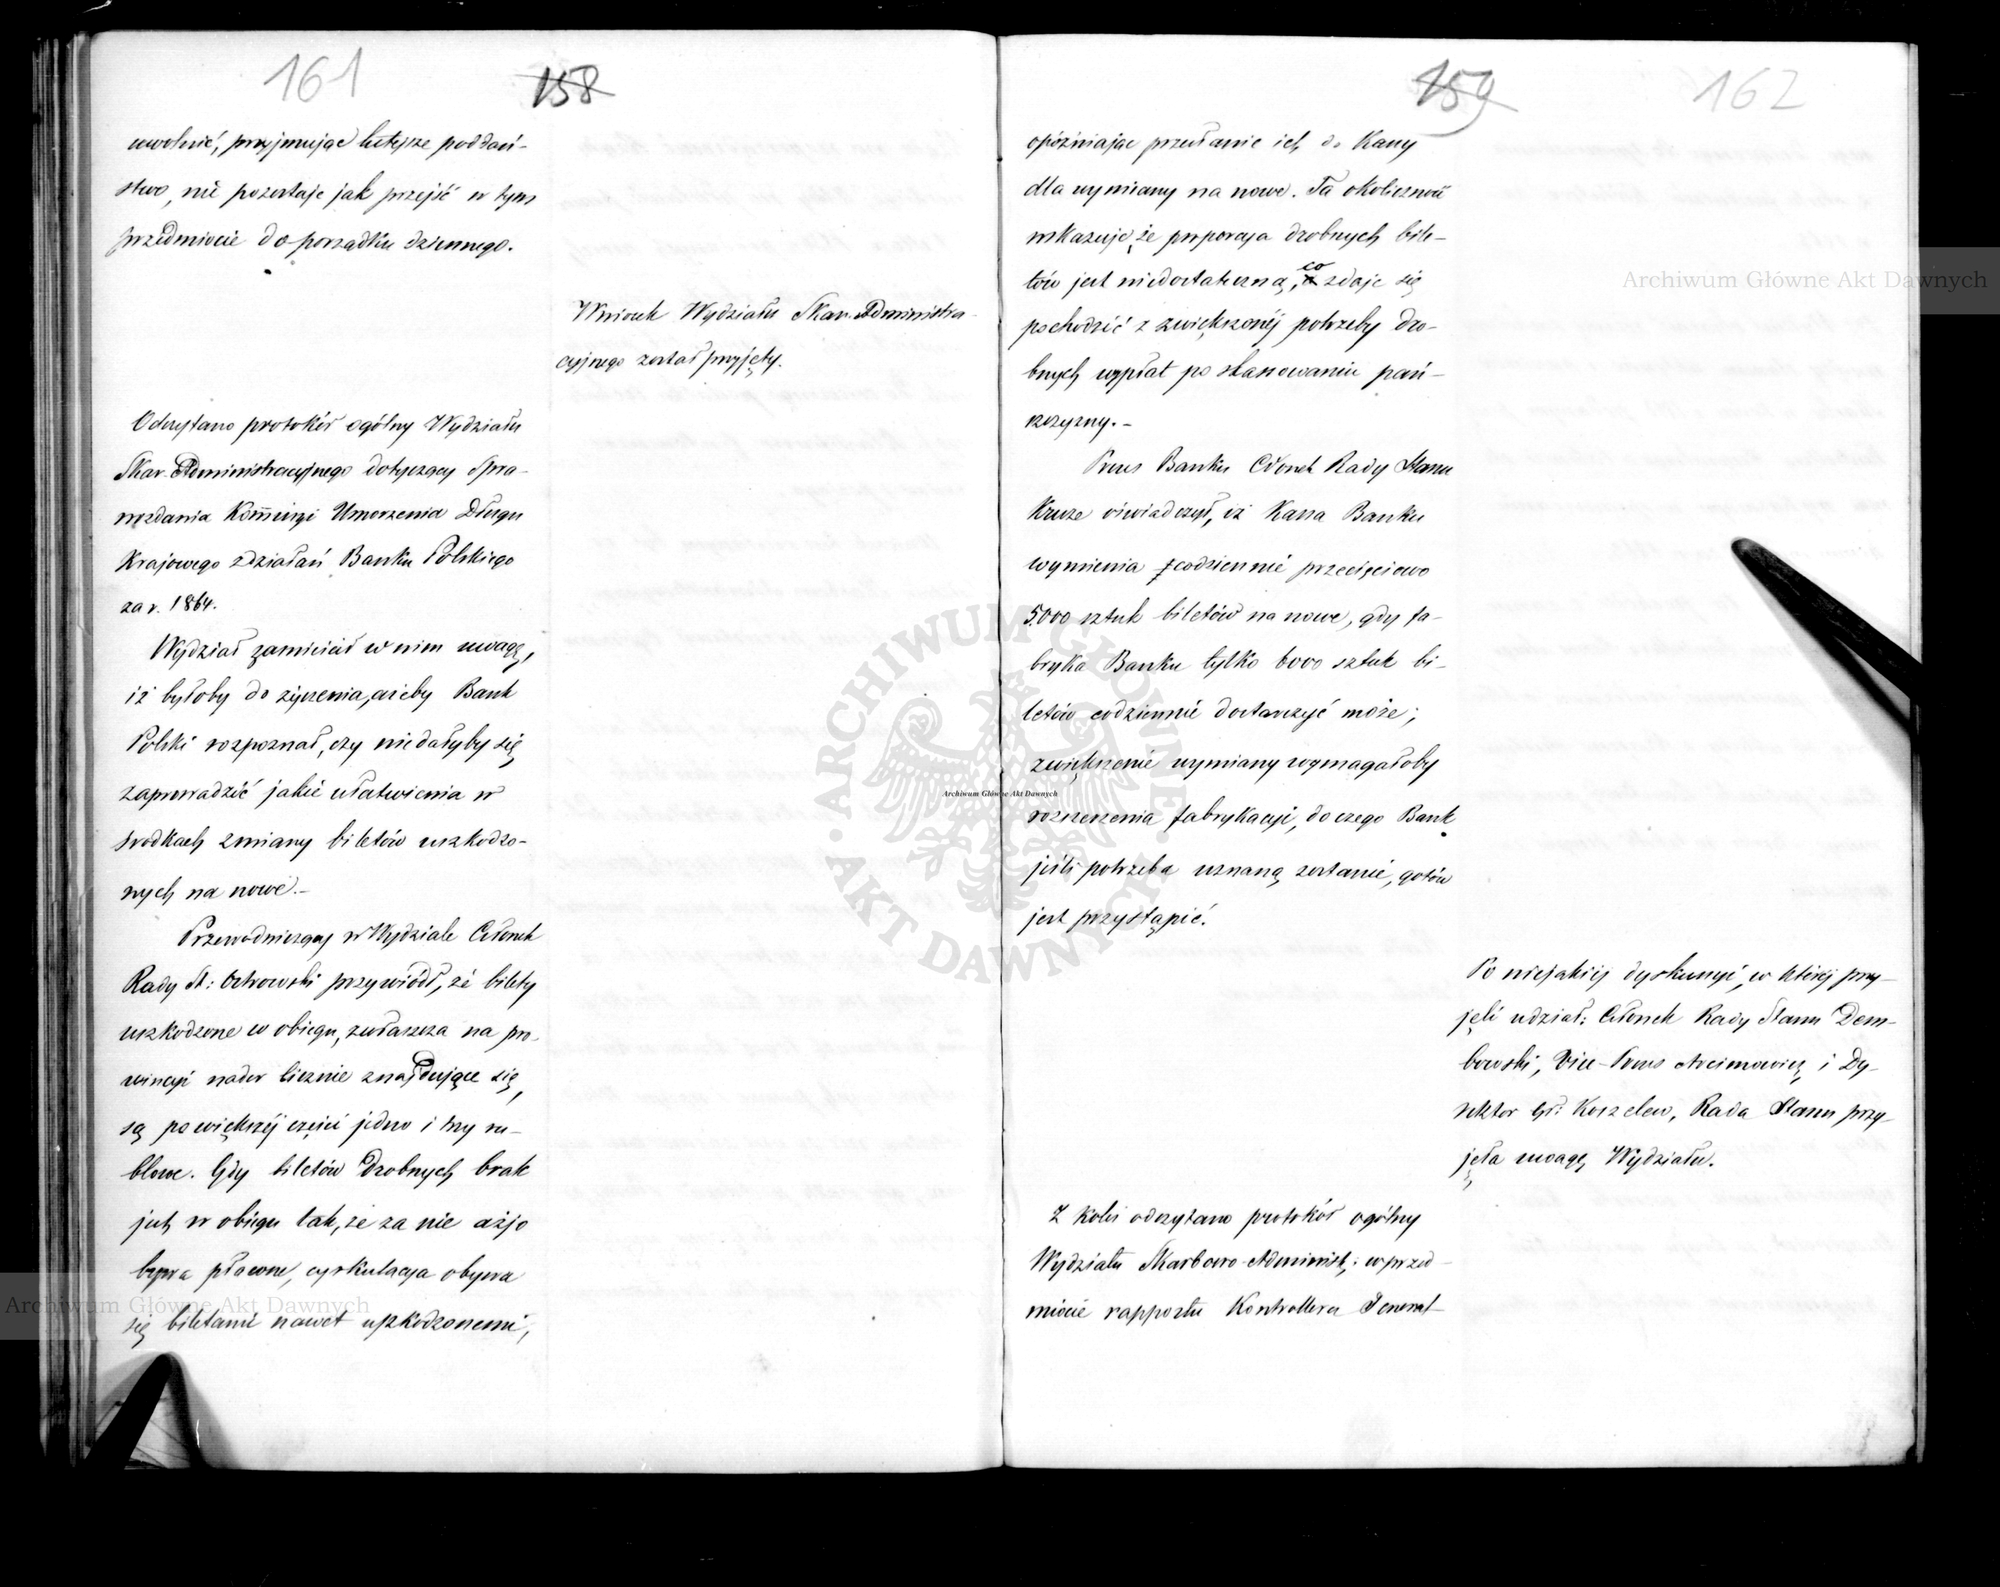 161
158
uwolnić, przyjmując tutejsze poddań-
stwo, nie pozostaje jak przejść w tym
przedmiocie do porządku dziennego.
Wniosek Wydziału Skar. Administra-
cyjnego został przyjęty.
Odczytano protokół ogólny Wydziału
Skar. Administracyjnego dotyczący Spra-
wozdania Kommissyi Umorzenia Długu
Krajowego z działań Banku Polskiego
za r. 1864.
Wydział zamieścił w nim uwagę,
iż byłoby do życzenia, ażeby Bank
Polski rozpoznał, czy nie dałyby się
zaprowadzić jakie ułatwienia w
środkach zmiany biletów uszkodzo-
nych na nowe.-
Przewodniczący w Wydziale Członek
Rady St: Ostrowski przywiódł, że bilety
uszkodzone w obiegu, zwłaszcza na pro-
wincyi nader licznie znajdujące się,
są po większej części jedno i trzy ru-
blowe. Gdy biletów drobnych brak
jest w obiegu tak, że za nie ażjo
bywa płacone, cyrkulacya obywa
się biletami nawet uszkodzonemi,
159
162
opóźniając przesłanie ich do Kassy
dla wymiany na nowe. Ta okoliczność
wskazuje, że proporcya drobnych bile-
tów jest niedostateczną, co zdaje się
pochodzić z zwiększonej potrzeby dro-
bnych wypłat po skasowaniu pań-
szczyzny.-
Prezes Banku Członek Rady Stanu
Kruze oświadczył, iż Kassa Banku
wymienia codziennie przecięciowo
5000 sztuk biletów na nowe, gdy fa-
bryka Banku tylko 6000 sztuk bi-
letów codziennie dostarczyć może;
zwiększenie wymiany wymagałoby
rozszerzenia fabrykacyi, do czego Bank
jeśli potrzeba uznaną zostanie, gotów
jest przystąpić.
Po niejakiej dyskussyi, w której przy-
jęli udział: Członek Rady Stanu Dem-
bowski, Vice-Prezes Arcimowicz i Dy-
rektor Gł: Koszelew, Rada Stanu przy-
jęła uwagę Wydziału.
Z kolei odczytano protokół ogólny
Wydziału Skarbowo-Administ: w przed-
miocie rapportu Kontrollera General-
Archiwum Główne Akt Dawnych
ARCHIWUM GŁÓWNE AKT DAWNYCH
Archiwum Główne Akt Dawnych
Archiwum Główne Akt Dawnych